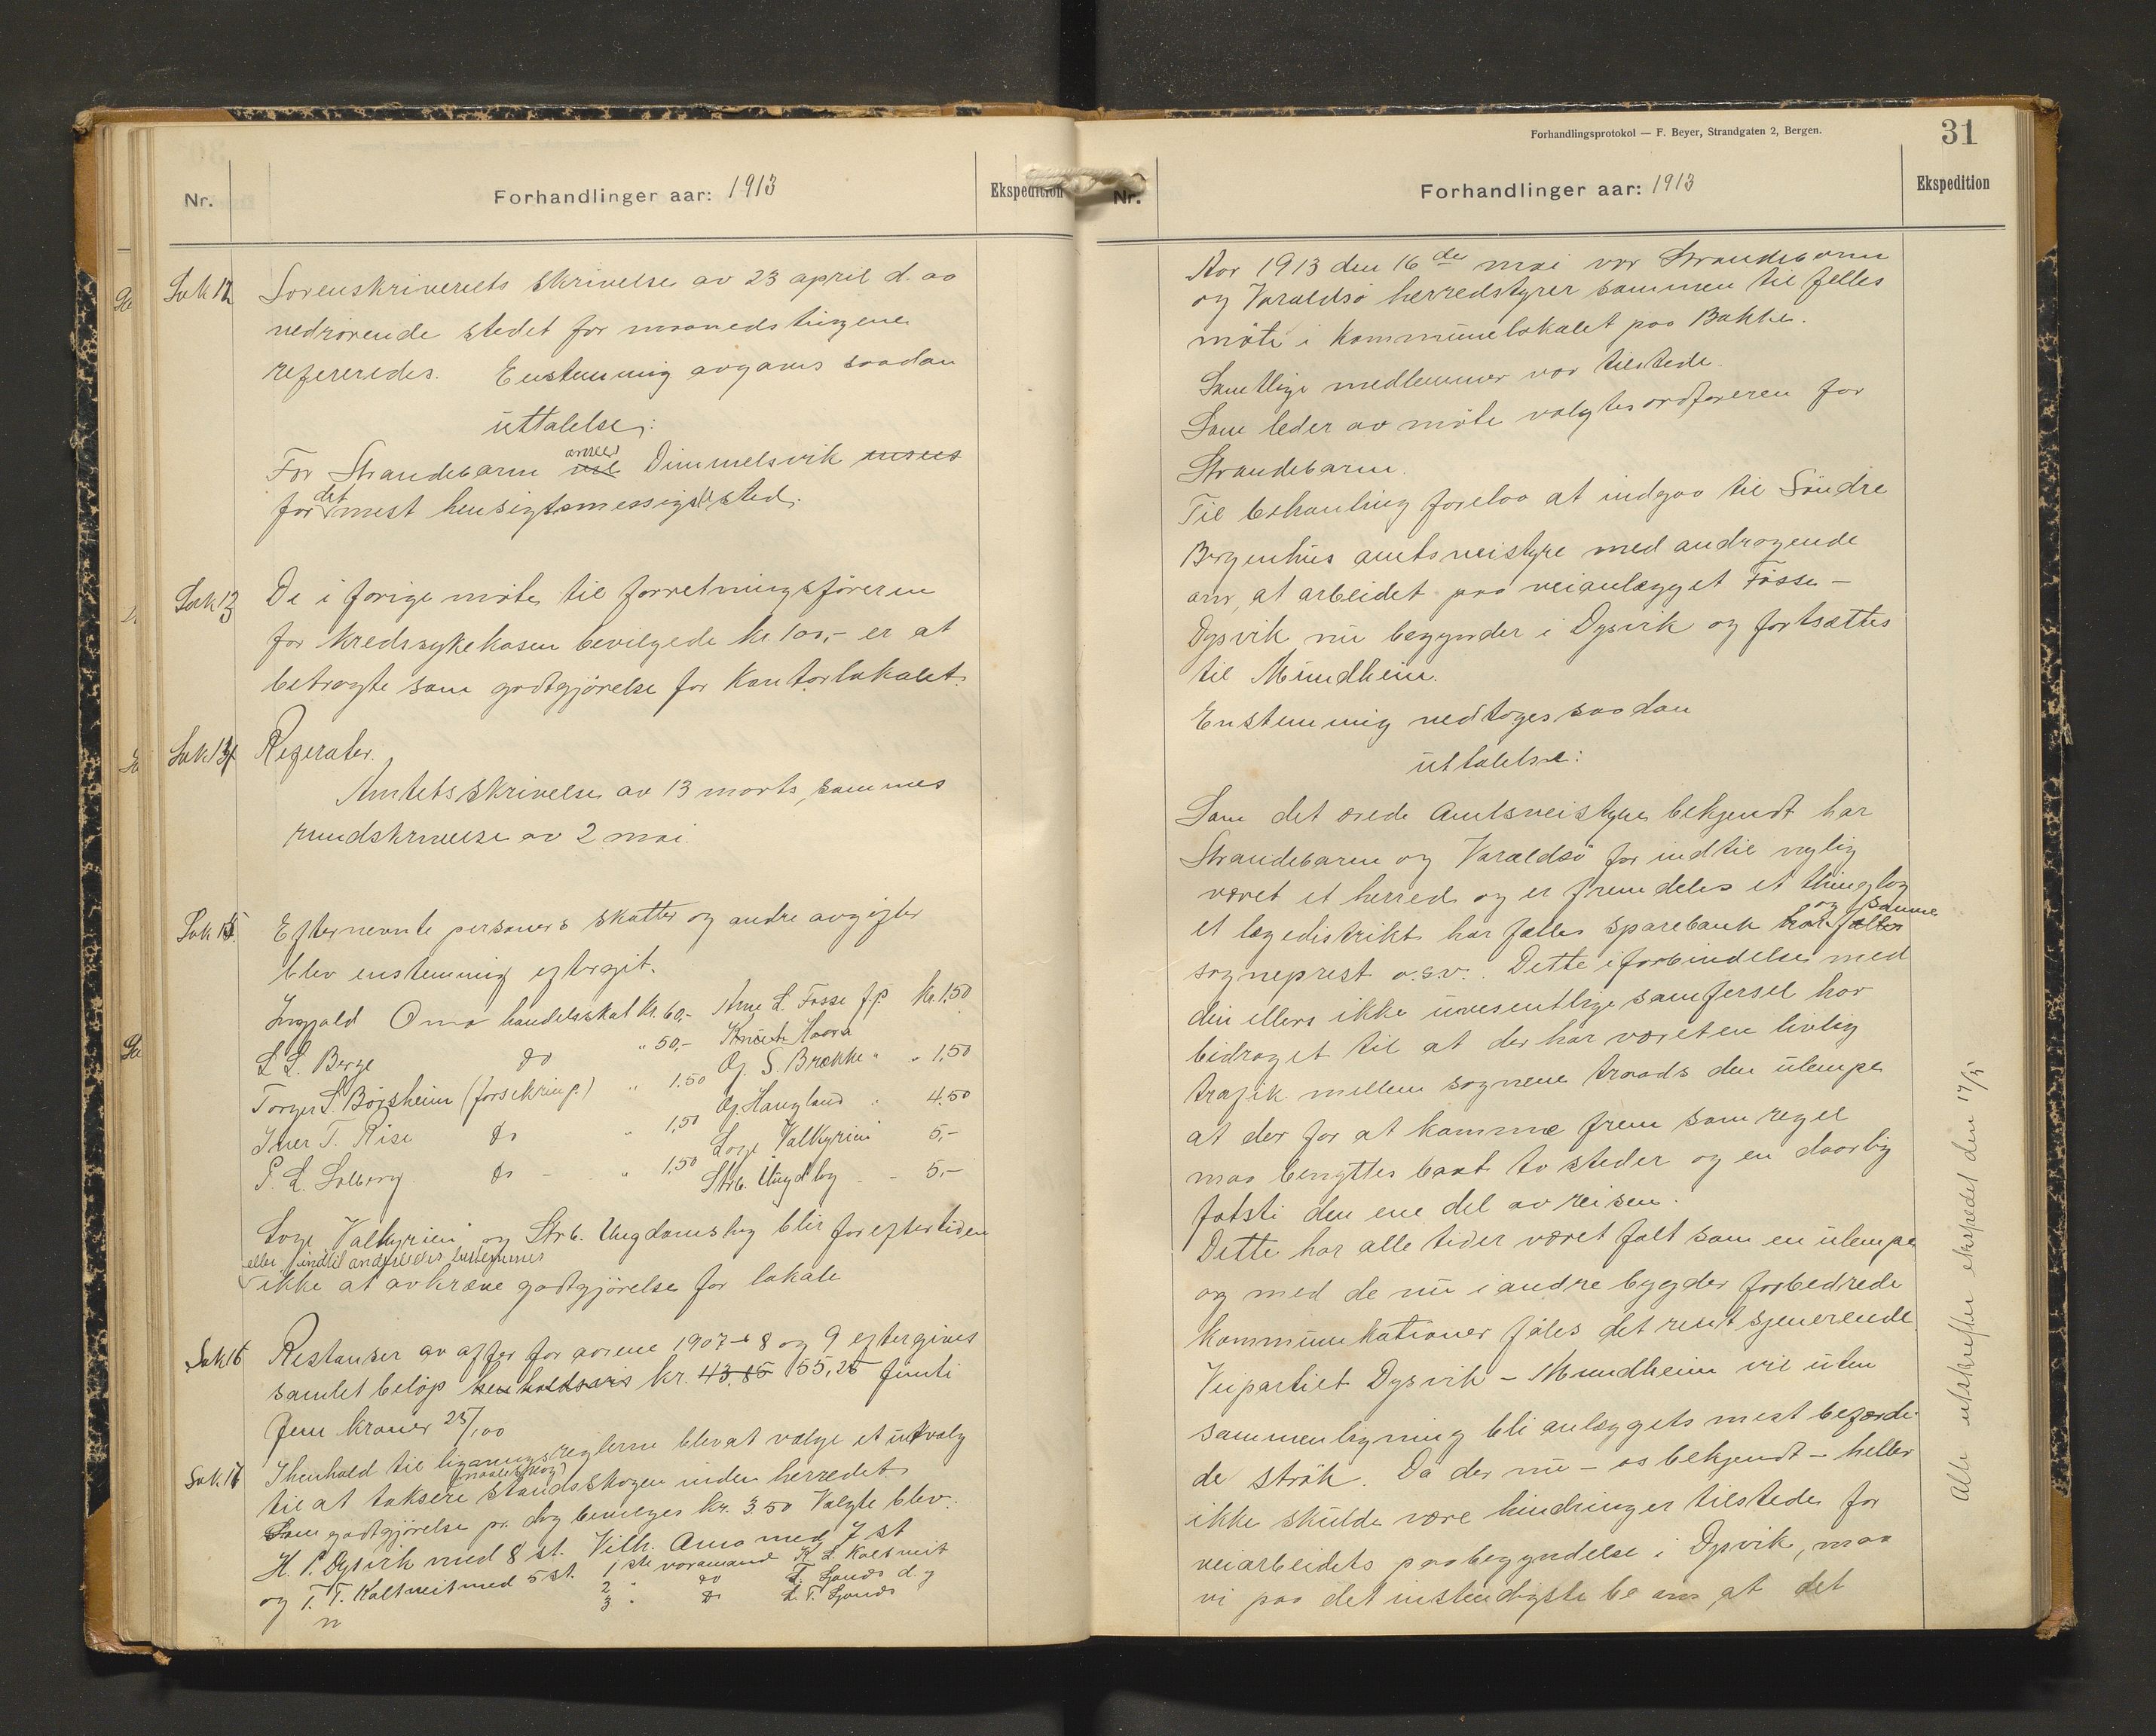 Nr.
Forhandlinger aar: 1913
Ekspedition
Sak 12
Sorenskriverets skrivelse av 23 april d. aa
vedrørende stedet for maanedstingene
refereredes. Enstemmig avgaves saadan
uttalelse:
anseed
For Strandebarm Dimmelsvik
det
for mest hensigtsmessige sted.
Sak 13
De i forige møte til forretningsføreren
for kredssykekasen bevilgede kr 100,- er at
betragte som godtgjørelse for Kontorlokalet.
Sak 14
Referater.
Amtets skrivelse av 13 marts, sammes
rundskrivelse av 2 mai.
Sak 15
Efternevnte personers skatter og andre avgifter
blev enstemmig eftergit.
Ingjald Omo handelsskat kr. 60,- Arne L. Fosse f.p kr. 1,50
L L. Berge do " 50,- Knut Haara
Torger S. Børsheim (forsikring.) " 1.50 Og. S. Brække " " 1,50
Iver T. Rise do " 1,50 Og. Haugland " 4.50
P. L. Solberg do - " 1,50 Loge Valkyrien 5,-
Strb. Ungdlag - - 5,-
Loge "Valkyrien" og Strb. Ungdomslag blir for eftertiden
eller indtil andreledes bestemmes
ikke at avkræve godtgjørelse for lokale
Sak 16
Restanser av offer for aarene 1907 - 8 og 9 eftergives
samlet beløp henholdsvis kr. 43.85 55,25 femti
fem kroner 25/100
Sak. 17
I henhold til ligningsreglerne blev at vælge et utvalg
til at taksere standsskogen inden herredet
Som godtgjørelse pr. dag bevilges kr. 3.50 Valgte blev:
H. P. Dysvik med 8 st. Vilh. Omo med 7 st
og T. T. Kaltveit med 5 st. 1ste varamand K. L. Kaltveit
2 " do
3 " do
Forhandlingsprotokol — F. Beyer, Strandgaten 2, Bergen.
31
Nr.
Forhandlinger aar: 1913
Ekspedition
Aar 1913 den 16de mai var Strandebarm
og Varaldsø herredstyrer sammen til felles
møte i Kommunelokalet paa Bakke.
Samtlige medlemmer var tilstede.
Som leder av møte valgtes ordføreren for
Strandebarm.
Til behanling forelaa at indgaa til Søndre
Bergenhus amtsveistyre med andragende
om, at arbeidet paa veianlægget Fosse -
Dysvik nu begynder i Dysvik og fortsættes
til Mundheim.
Enstemmig vedtoges saadan
uttalelse:
Som det ærede Amtsveistyre bekjendt har
Strandebarm og Varaldsø for indtil nylig
været et herred og er fremdeles et thinglag
og samme
et lægedistrikt har fælles sparebank har fælles
sogneprest o.s.v. Dette i forbindelse med
den ellers ikke uvesentlige samfersel har
bidraget til at der har været en livlig
trafik mellem sognene traads den ulempe
at der for at komme frem som regel
maa benyttes baat to steder og en daarlig
fotsti den ene del av reisen.
Dette har alle tider været følt som en ulempe
og med de nu i andre bygder forbedrede
kommunikationer føles det rent sjenerende.
Veipartiet Dysvik - Mundheim vil uten
sammenligning bli anlæggets mest befærde-
de strøk. Da der nu - os bekjendt - heller
ikke skulde være hindringer tilstede for
veiarbeidets paabegyndelse i Dysvik, maa
vi paa det instendigste be om at det
Alle utskrifter ekspedet den 17/5